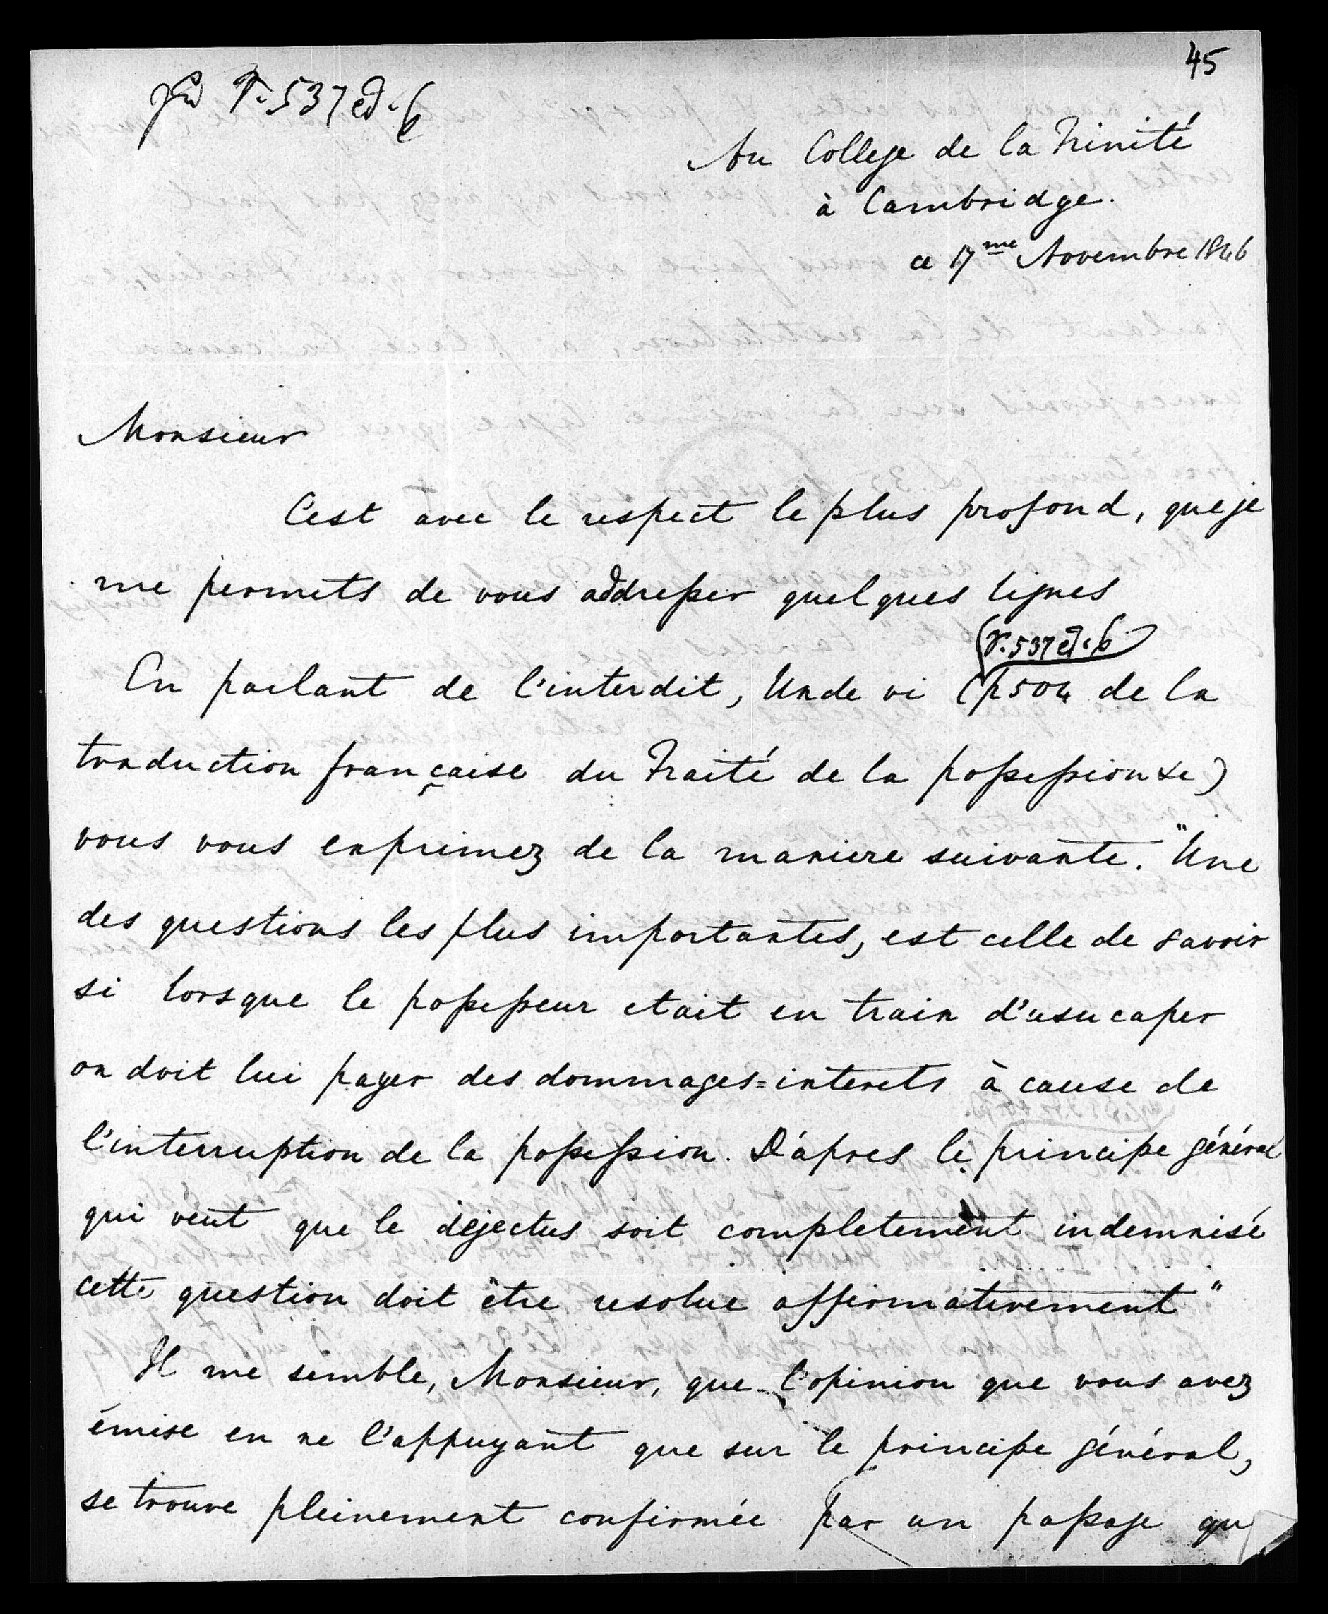 45
P. 537 ed. 6
Au College de la Trinité
à Cambridge.
ce 17me Novembre 1846
Monsieur
C'est avec le respect le plus profond, que je
me permets de vous addresser quelques lignes
(P. 537 ed. 6
En parlant de l'interdit, Unde vi (p 504 de la
traduction française du Traité de la possession &c)
vous vous exprimez de la maniere suivante. "Une
des questions les plus importantes, est celle de savoir
si lorsque le possesseur etait en train d'usucaper
on doit lui payer des dommages=interets à cause de
l'interruption de la possession. D'apres le principe général
qui veut que le dejectus soit completement indemnisé
cette question doit être resolue affirmativement"
Il me semble, Monsieur, que l'opinion que vous avez
émise en ne l'appuyant que sur le principe général,
se trouve pleinement confirmée par un passage qu